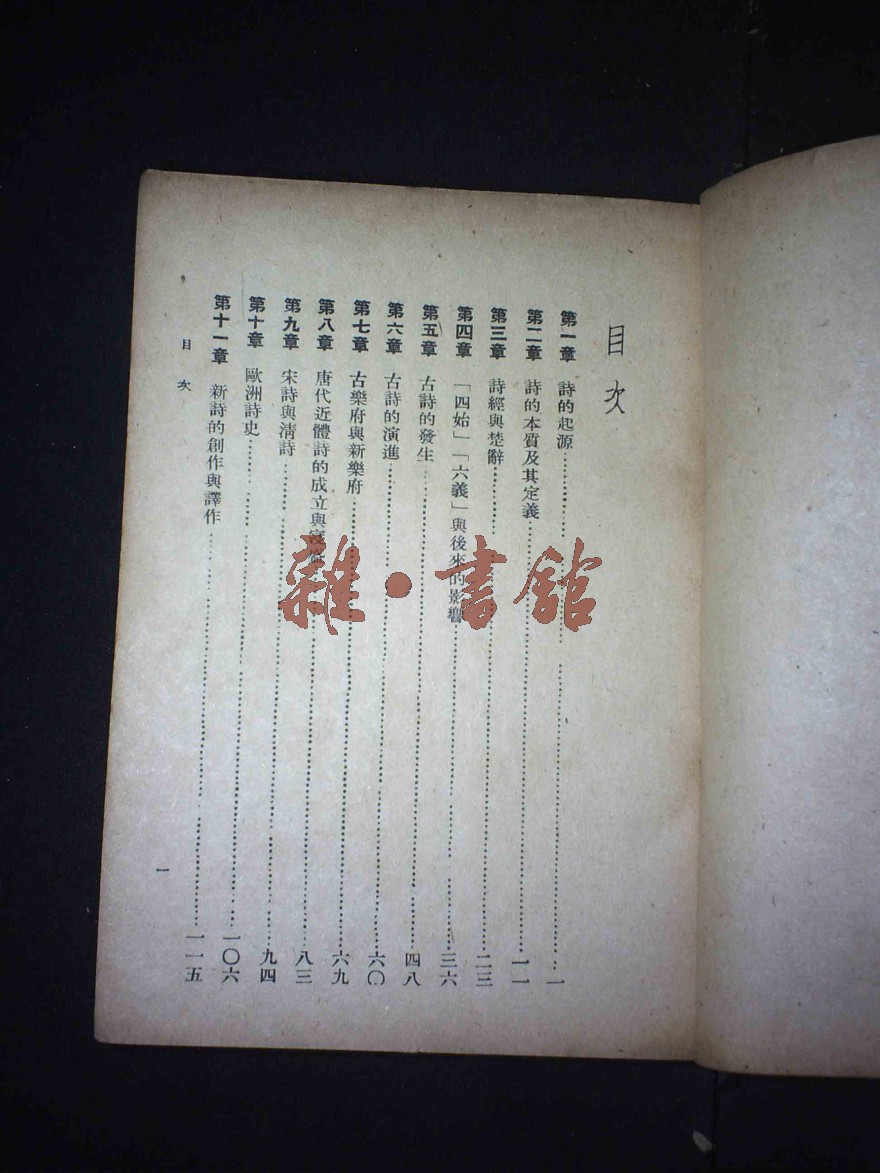 目次
第一章 詩的起源……一
第二章 詩的本質及其定義……一一
第三章 詩經與楚辭……二三
第四章 「四始」「六義」與後來的影響……三六
第五章 古詩的發生……四八
第六章 古詩的演進……六〇
第七章 古樂府與新樂府……六九
第八章 唐代近體詩的成立與……八三
第九章 宋詩與清詩……九四
第十章 歐洲詩史……一〇六
第十一章 新詩的創作與譯作……一一五
目次
一
雜·書館